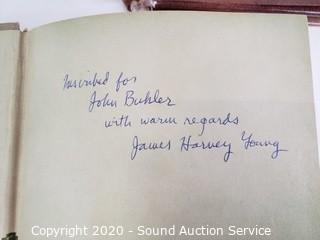 Inscribed for
John Buhler
with warm regards
James Harvey Young
Copyright 2020 - Sound Auction Service